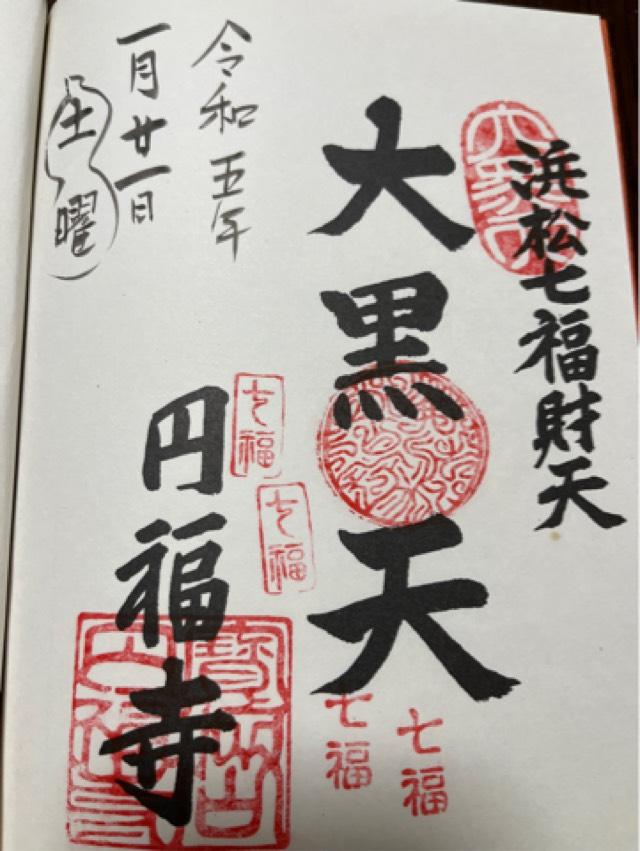 浜松七福財天
大黒天
円福寺
令和五年
一月廿一日
土曜
七福
七福
七福
七福